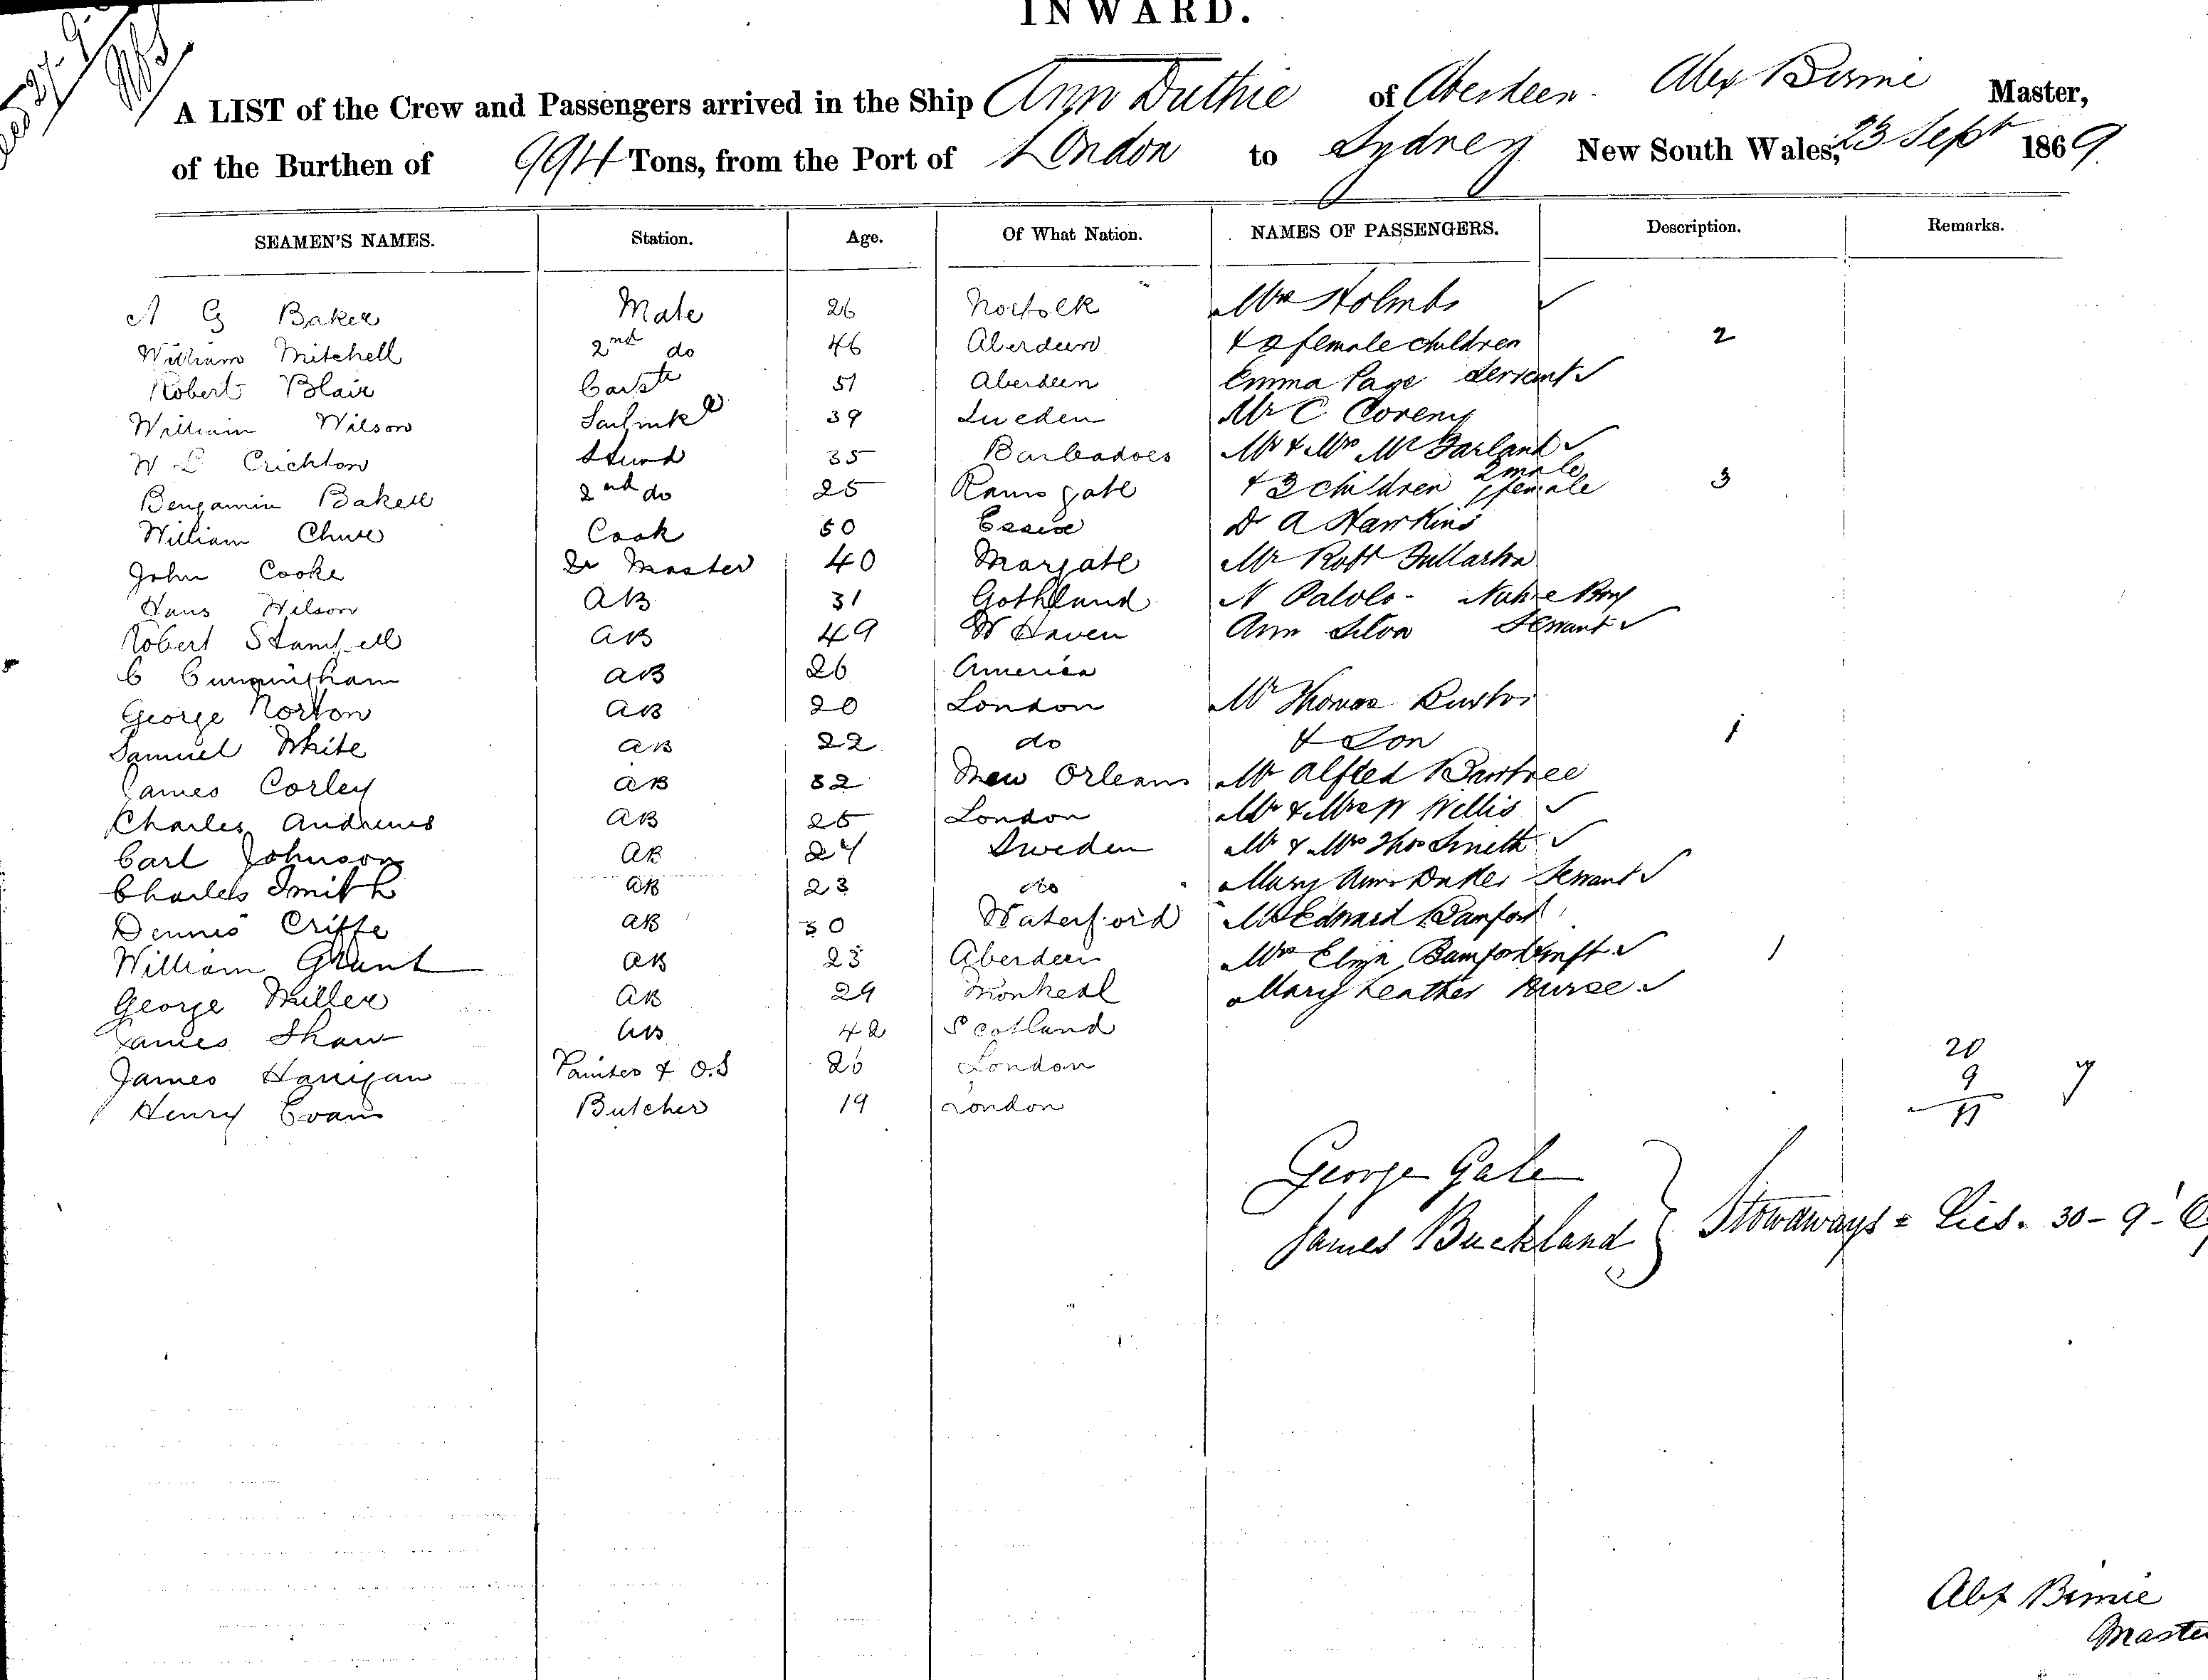 INWARD.
A LIST of the Crew and Passengers arrived in the Ship Ann Duthie of Aberdeen. Alex Birnie Master,
of the Burthen of 994 Tons, from the Port of London to Sydney New South Wales, 23 Sept 1869
SEAMEN'S NAMES. Station. Age. Of What Nation. NAMES OF PASSENGERS. Description. Remarks.
A G Baker Mate 26 Norfolk Mrs Holmbs ✓
William Mitchell 2nd do 46 Aberdeen & 2 female children 2
Robert Blair 51 Aberdeen Emma Page Servant ✓
William Wilson 39 Sweden Mr C Coveny
W Crichton Stwd 35 Barbadoes Mr & Mrs McFarland ✓
Benjamin Baker 2nd do 25 Ramsgate & 3 children 2 male 1 female 3
William Cook 50 Essex A Hawkins
John Cooke Qr Master 40 Margate Mr Robt Fullarton
Hans Wilson AB 31 Gothland N Palolo - Native Boy
Robert AB 49 W Haven Ann Silva Servant ✓
C Cunningham AB 26 America
George Norton AB 20 London Mr Thomas
Samuel White AB 22 do & Son 1
James Corley AB 32 New Orleans Mr Alfred Bawtree
Charles Andrews AB 25 London Mr & Mrs W Willis ✓
Carl Johnson AB 24 Sweden Mr & Mrs Thos Smith ✓
Charles Smith AB 23 do Mary Ann Servant ✓
Dennis AB 30 Waterford Mr Edward Bamford
William Grant AB 23 Aberdeen Mrs Eliza Bamford & Inft ✓ 1
George Miller AB 29 Montreal Mary Leather Nurse ✓
James Shaw AB 42 Scotland
James Harrigan Painter & O.S 26 London
Henry Evans Butcher 19 London
20
9 7
11
George Gale
James Buckland } Stowaways = 30-9-
Alex Birnie
Master